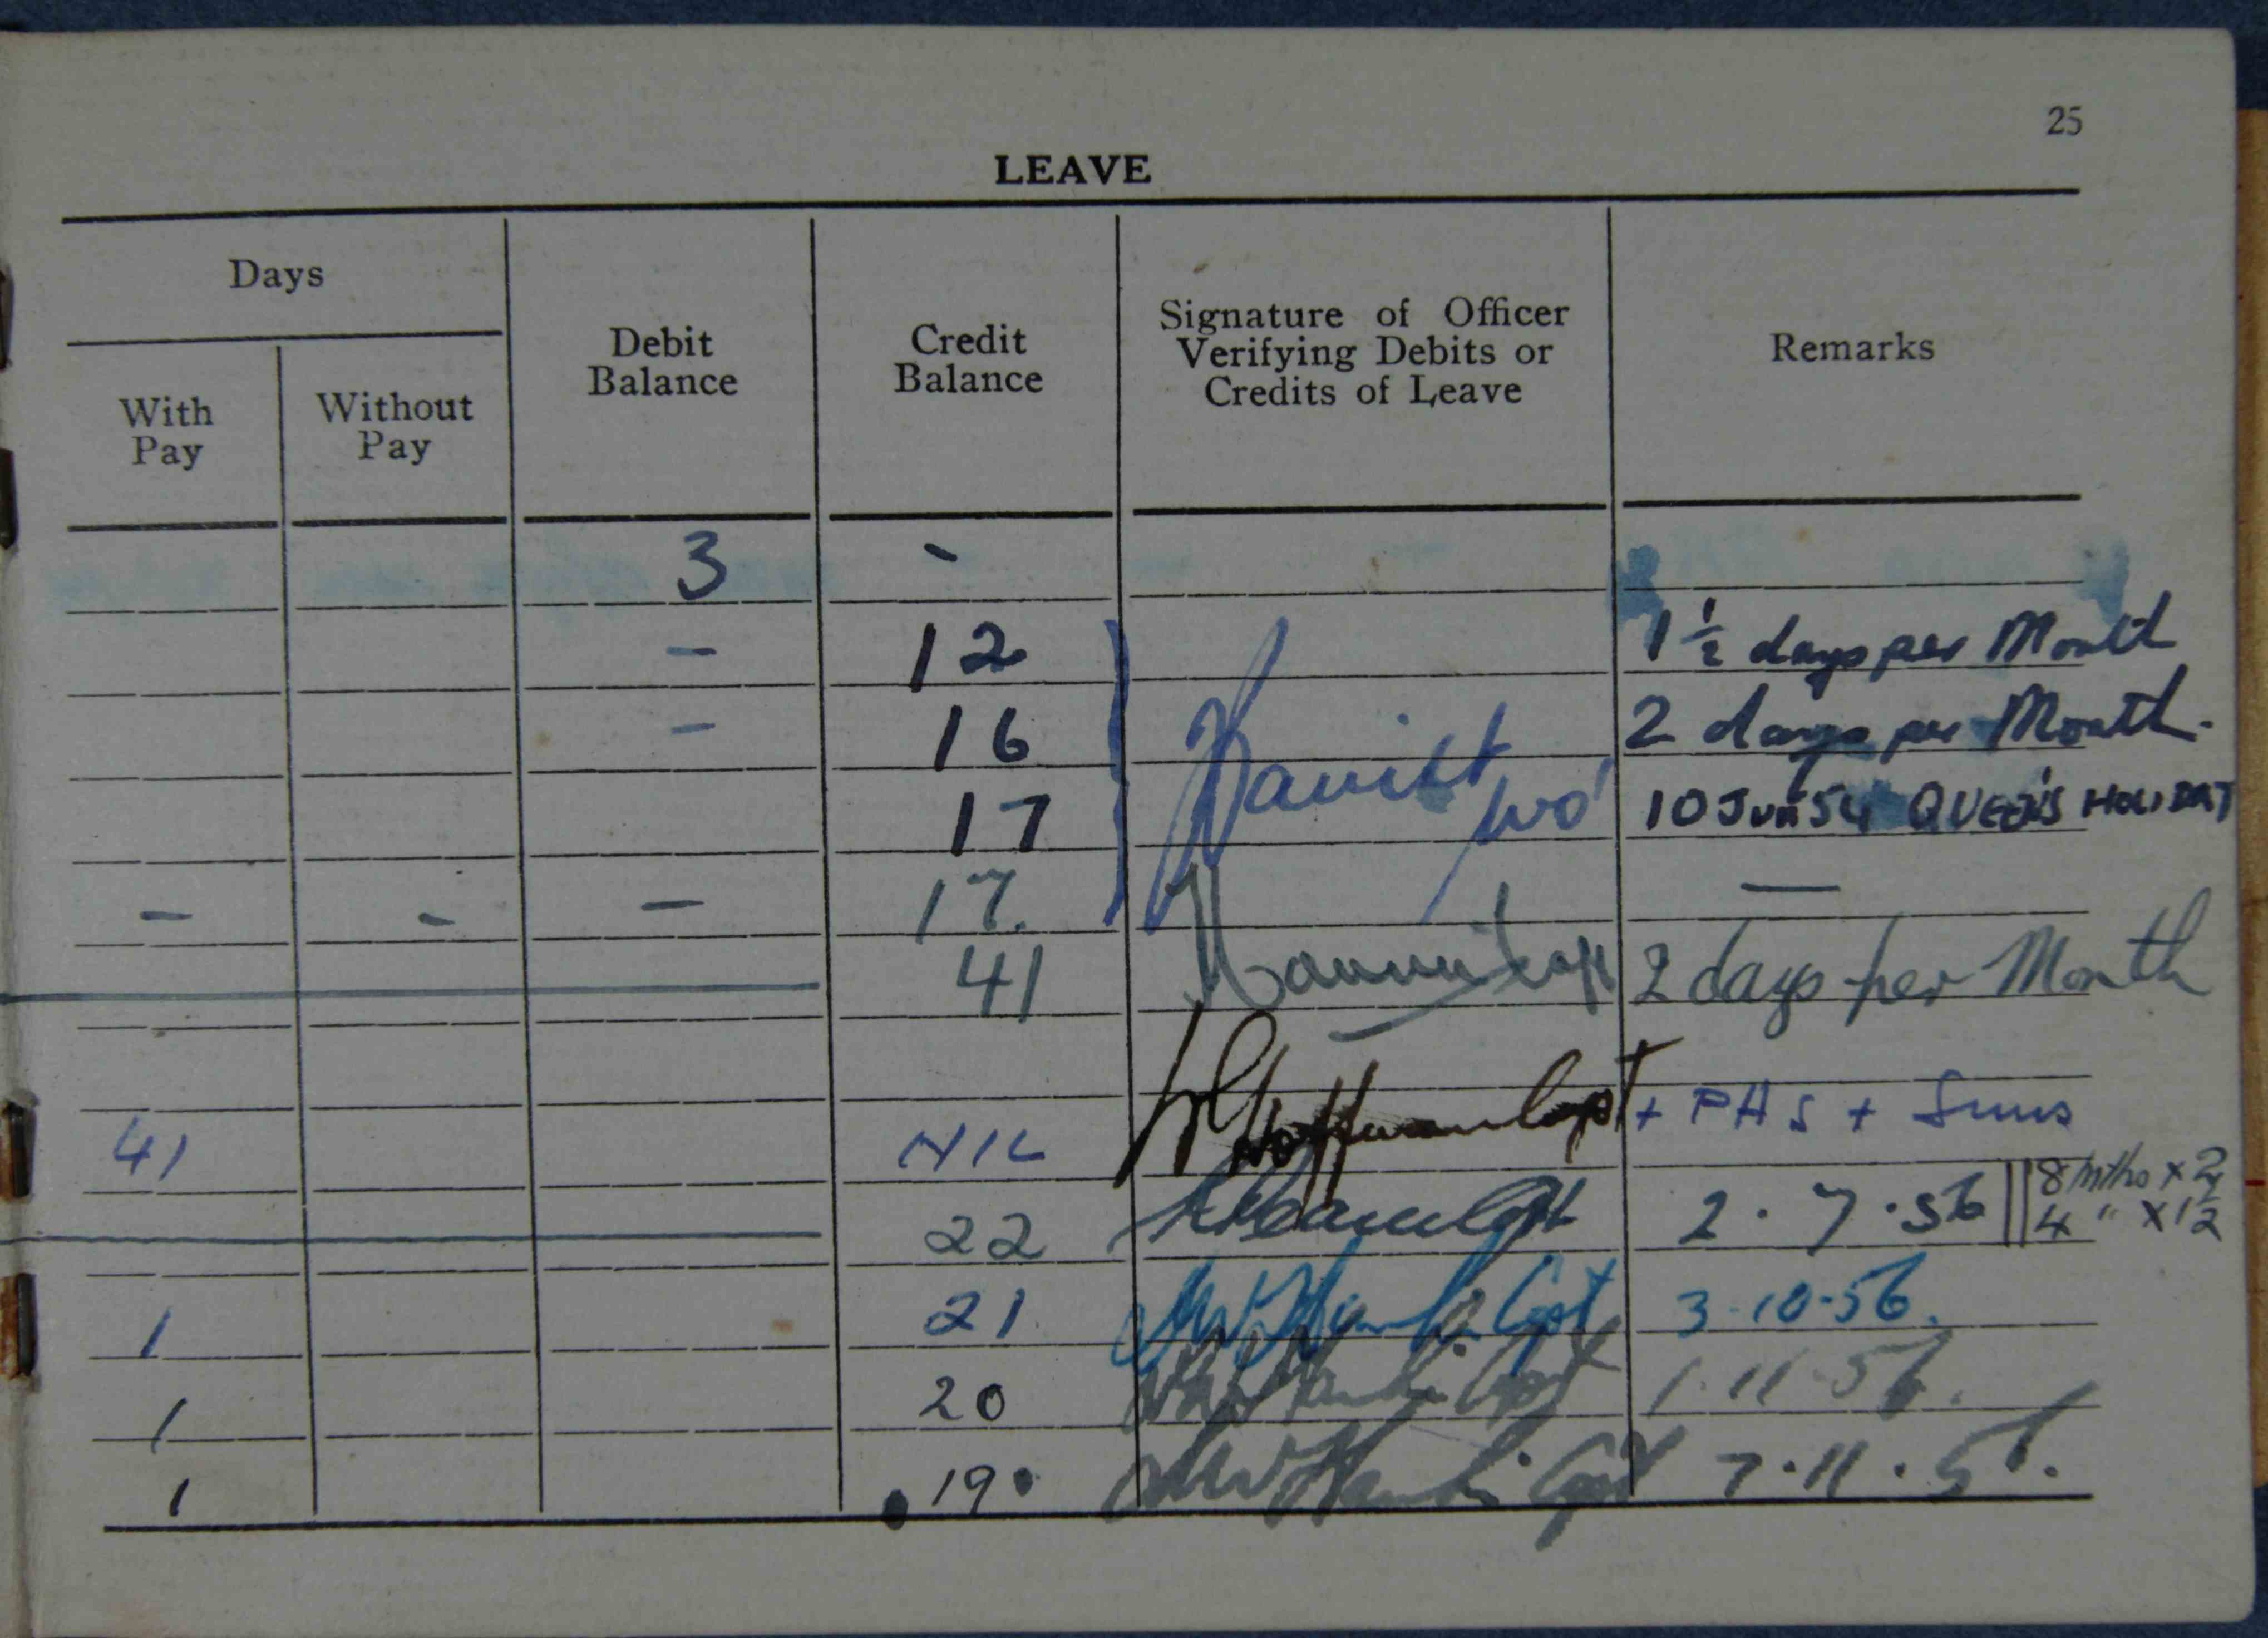 25
LEAVE
Days
With Pay
Without Pay
Debit Balance
Credit Balance
Signature of Officer
Verifying Debits or
Credits of Leave
Remarks
3 -
- 12 1 1/2 days per Month
- 16 2 days per Month.
17 WO1 10 Jun 54 QUEEN'S HOLIDAY
- - - 17. —
41 Capt 2 days per Month
41 NIL Hoffman Capt + PHS + Suns
22 Capt 2.7.56 || 8 mths x 2
4 " x 1 1/2
1 21 Capt 3-10-56.
1 20 Capt 1.11.56.
1 19 Capt 7.11.56.